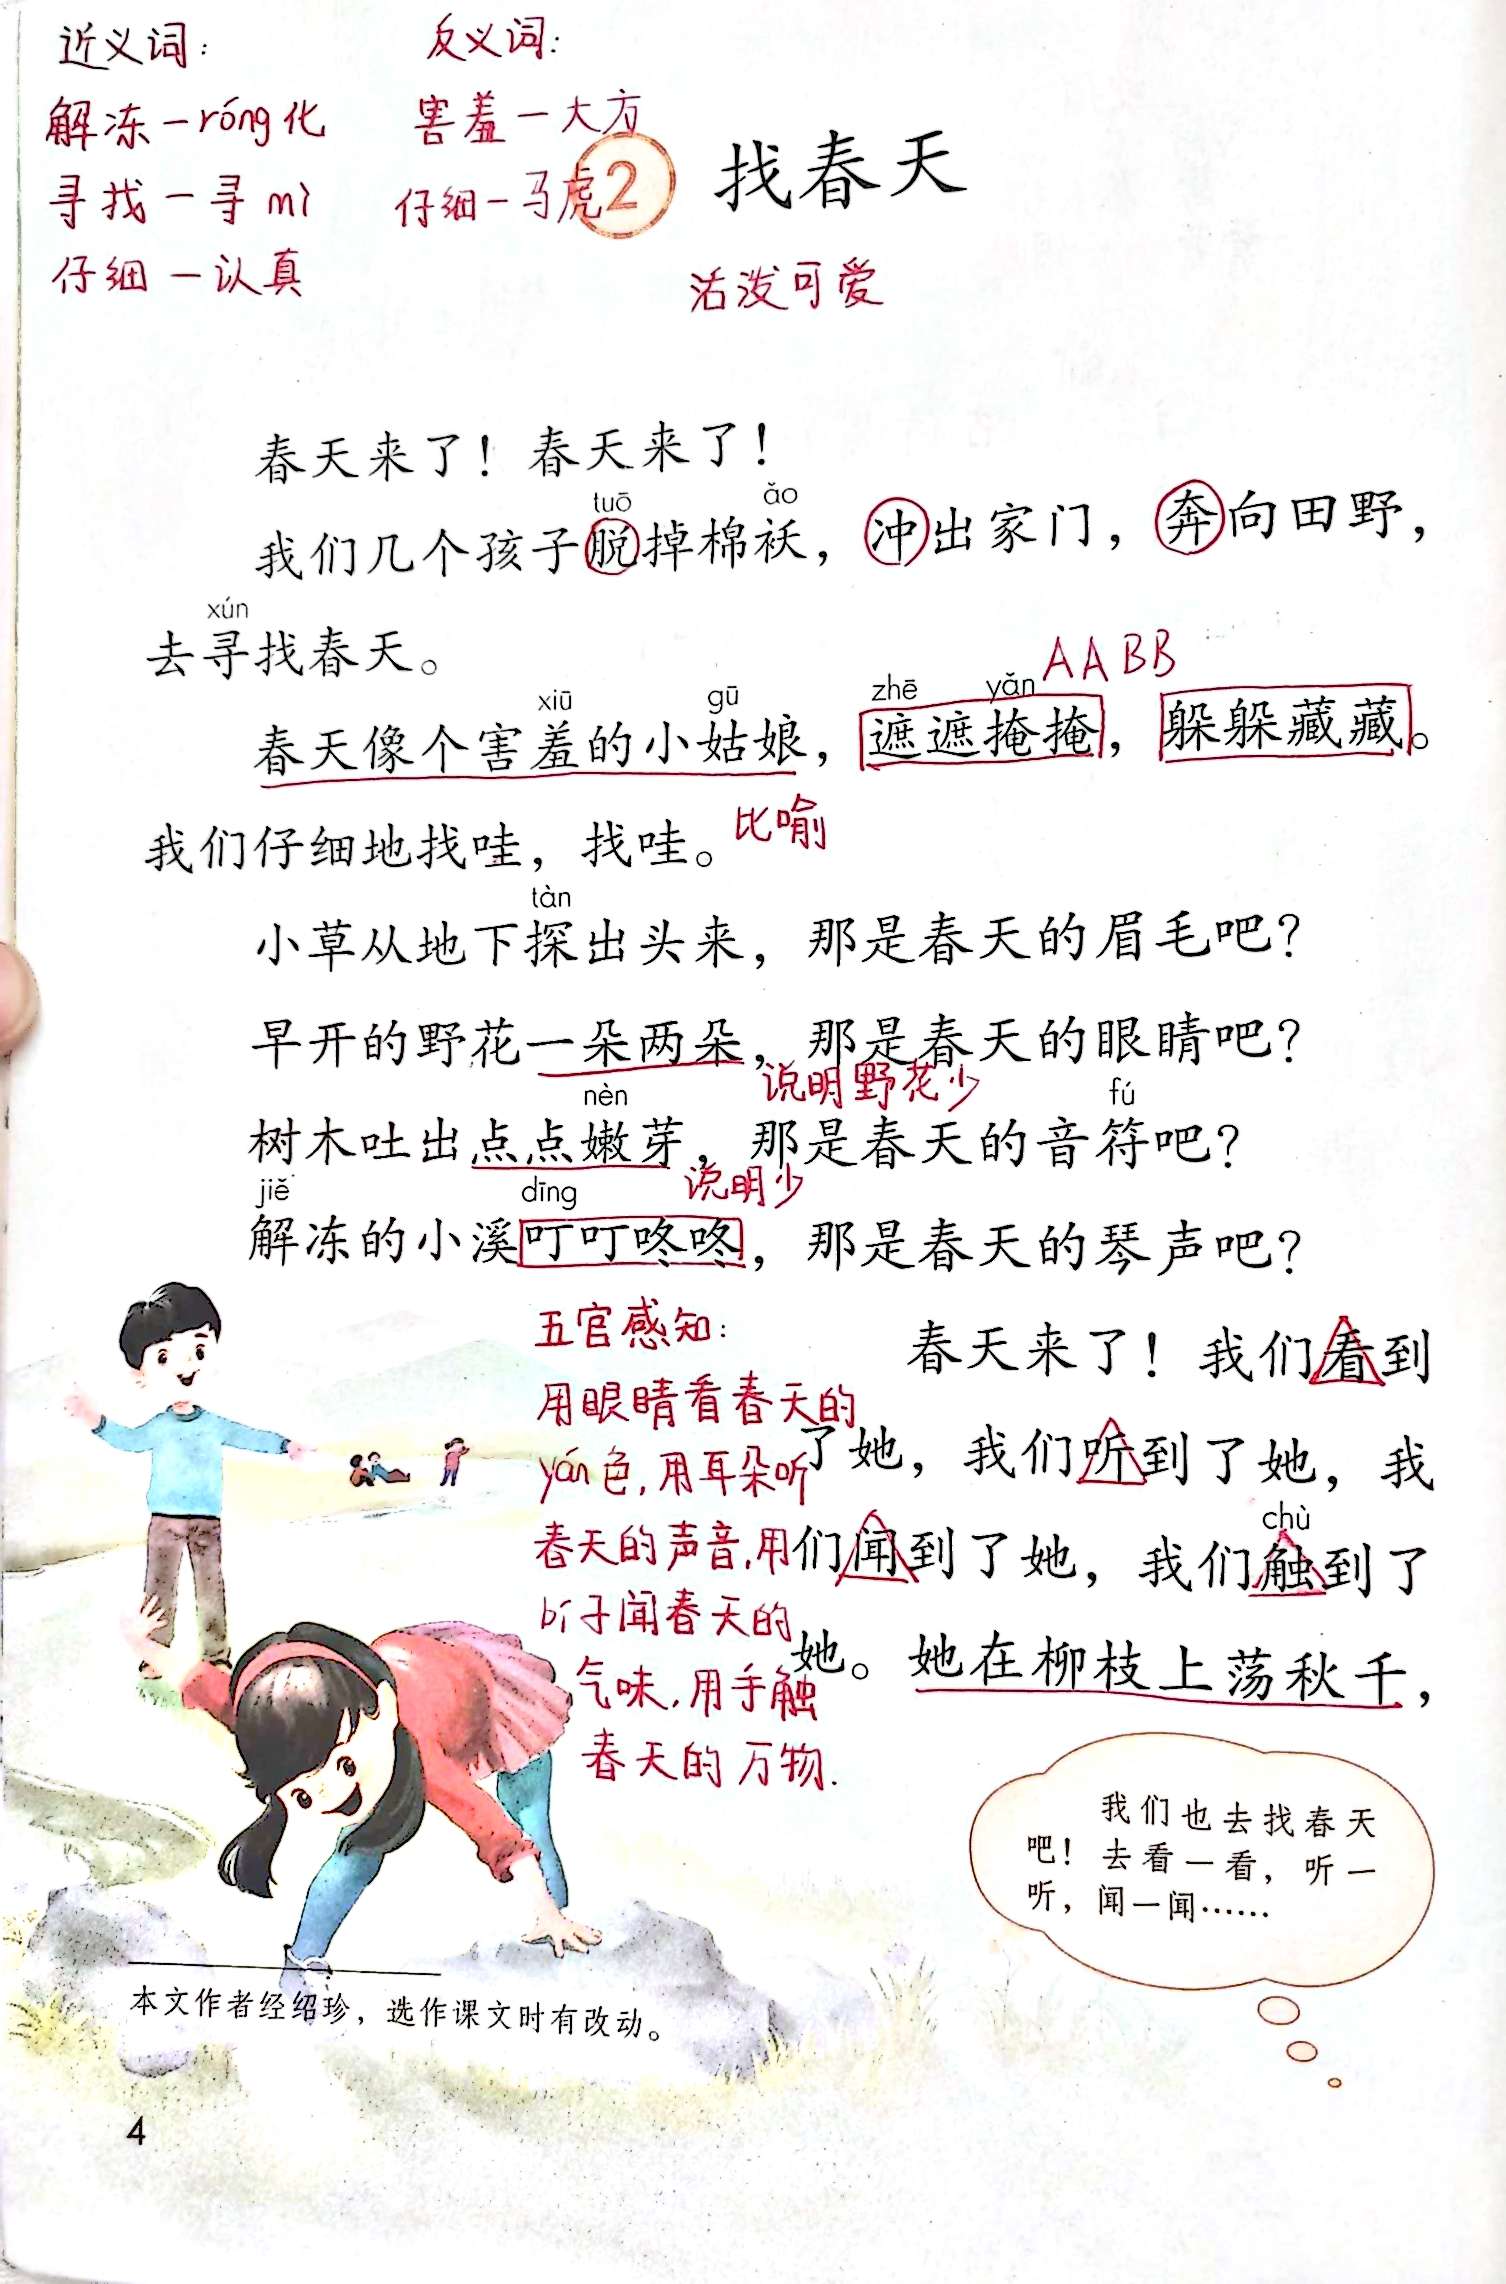 近义词: 反义词:
解冻—róng化 害羞—大方
寻找—寻mì 仔细—马虎
仔细—认真
2 找春天
活泼可爱
春天来了！春天来了！
tuō ǎo
我们几个孩子脱掉棉袄，冲出家门，奔向田野，
xún
去寻找春天。
AABB
xiū gū zhē yǎn
春天像个害羞的小姑娘，遮遮掩掩，躲躲藏藏。
我们仔细地找哇，找哇。
比喻
tàn
小草从地下探出头来，那是春天的眉毛吧？
早开的野花一朵两朵，那是春天的眼睛吧？
说明野花少
nèn fú
树木吐出点点嫩芽，那是春天的音符吧？
说明少
jiě dīng
解冻的小溪叮叮咚咚，那是春天的琴声吧？
春天来了！我们看到
了她，我们听到了她，我
chù
们闻到了她，我们触到了
她。她在柳枝上荡秋千，
五官感知:
用眼睛看春天的
yán色,用耳朵听
春天的声音,用
bí子闻春天的
气味,用手触
春天的万物.
我们也去找春天
吧！去看一看，听一
听，闻一闻……
本文作者经绍珍，选作课文时有改动。
4